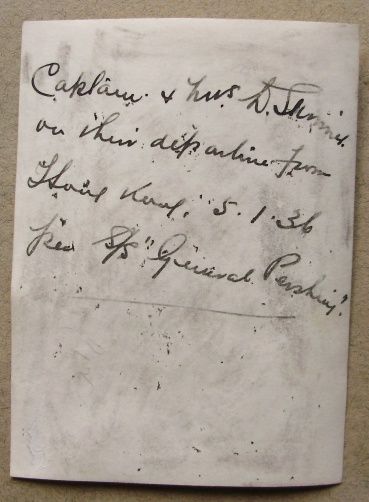 Captain & Mrs D. Skinner
on their departure from
Hong Kong, 5.1.36
per S/S "General Pershing".